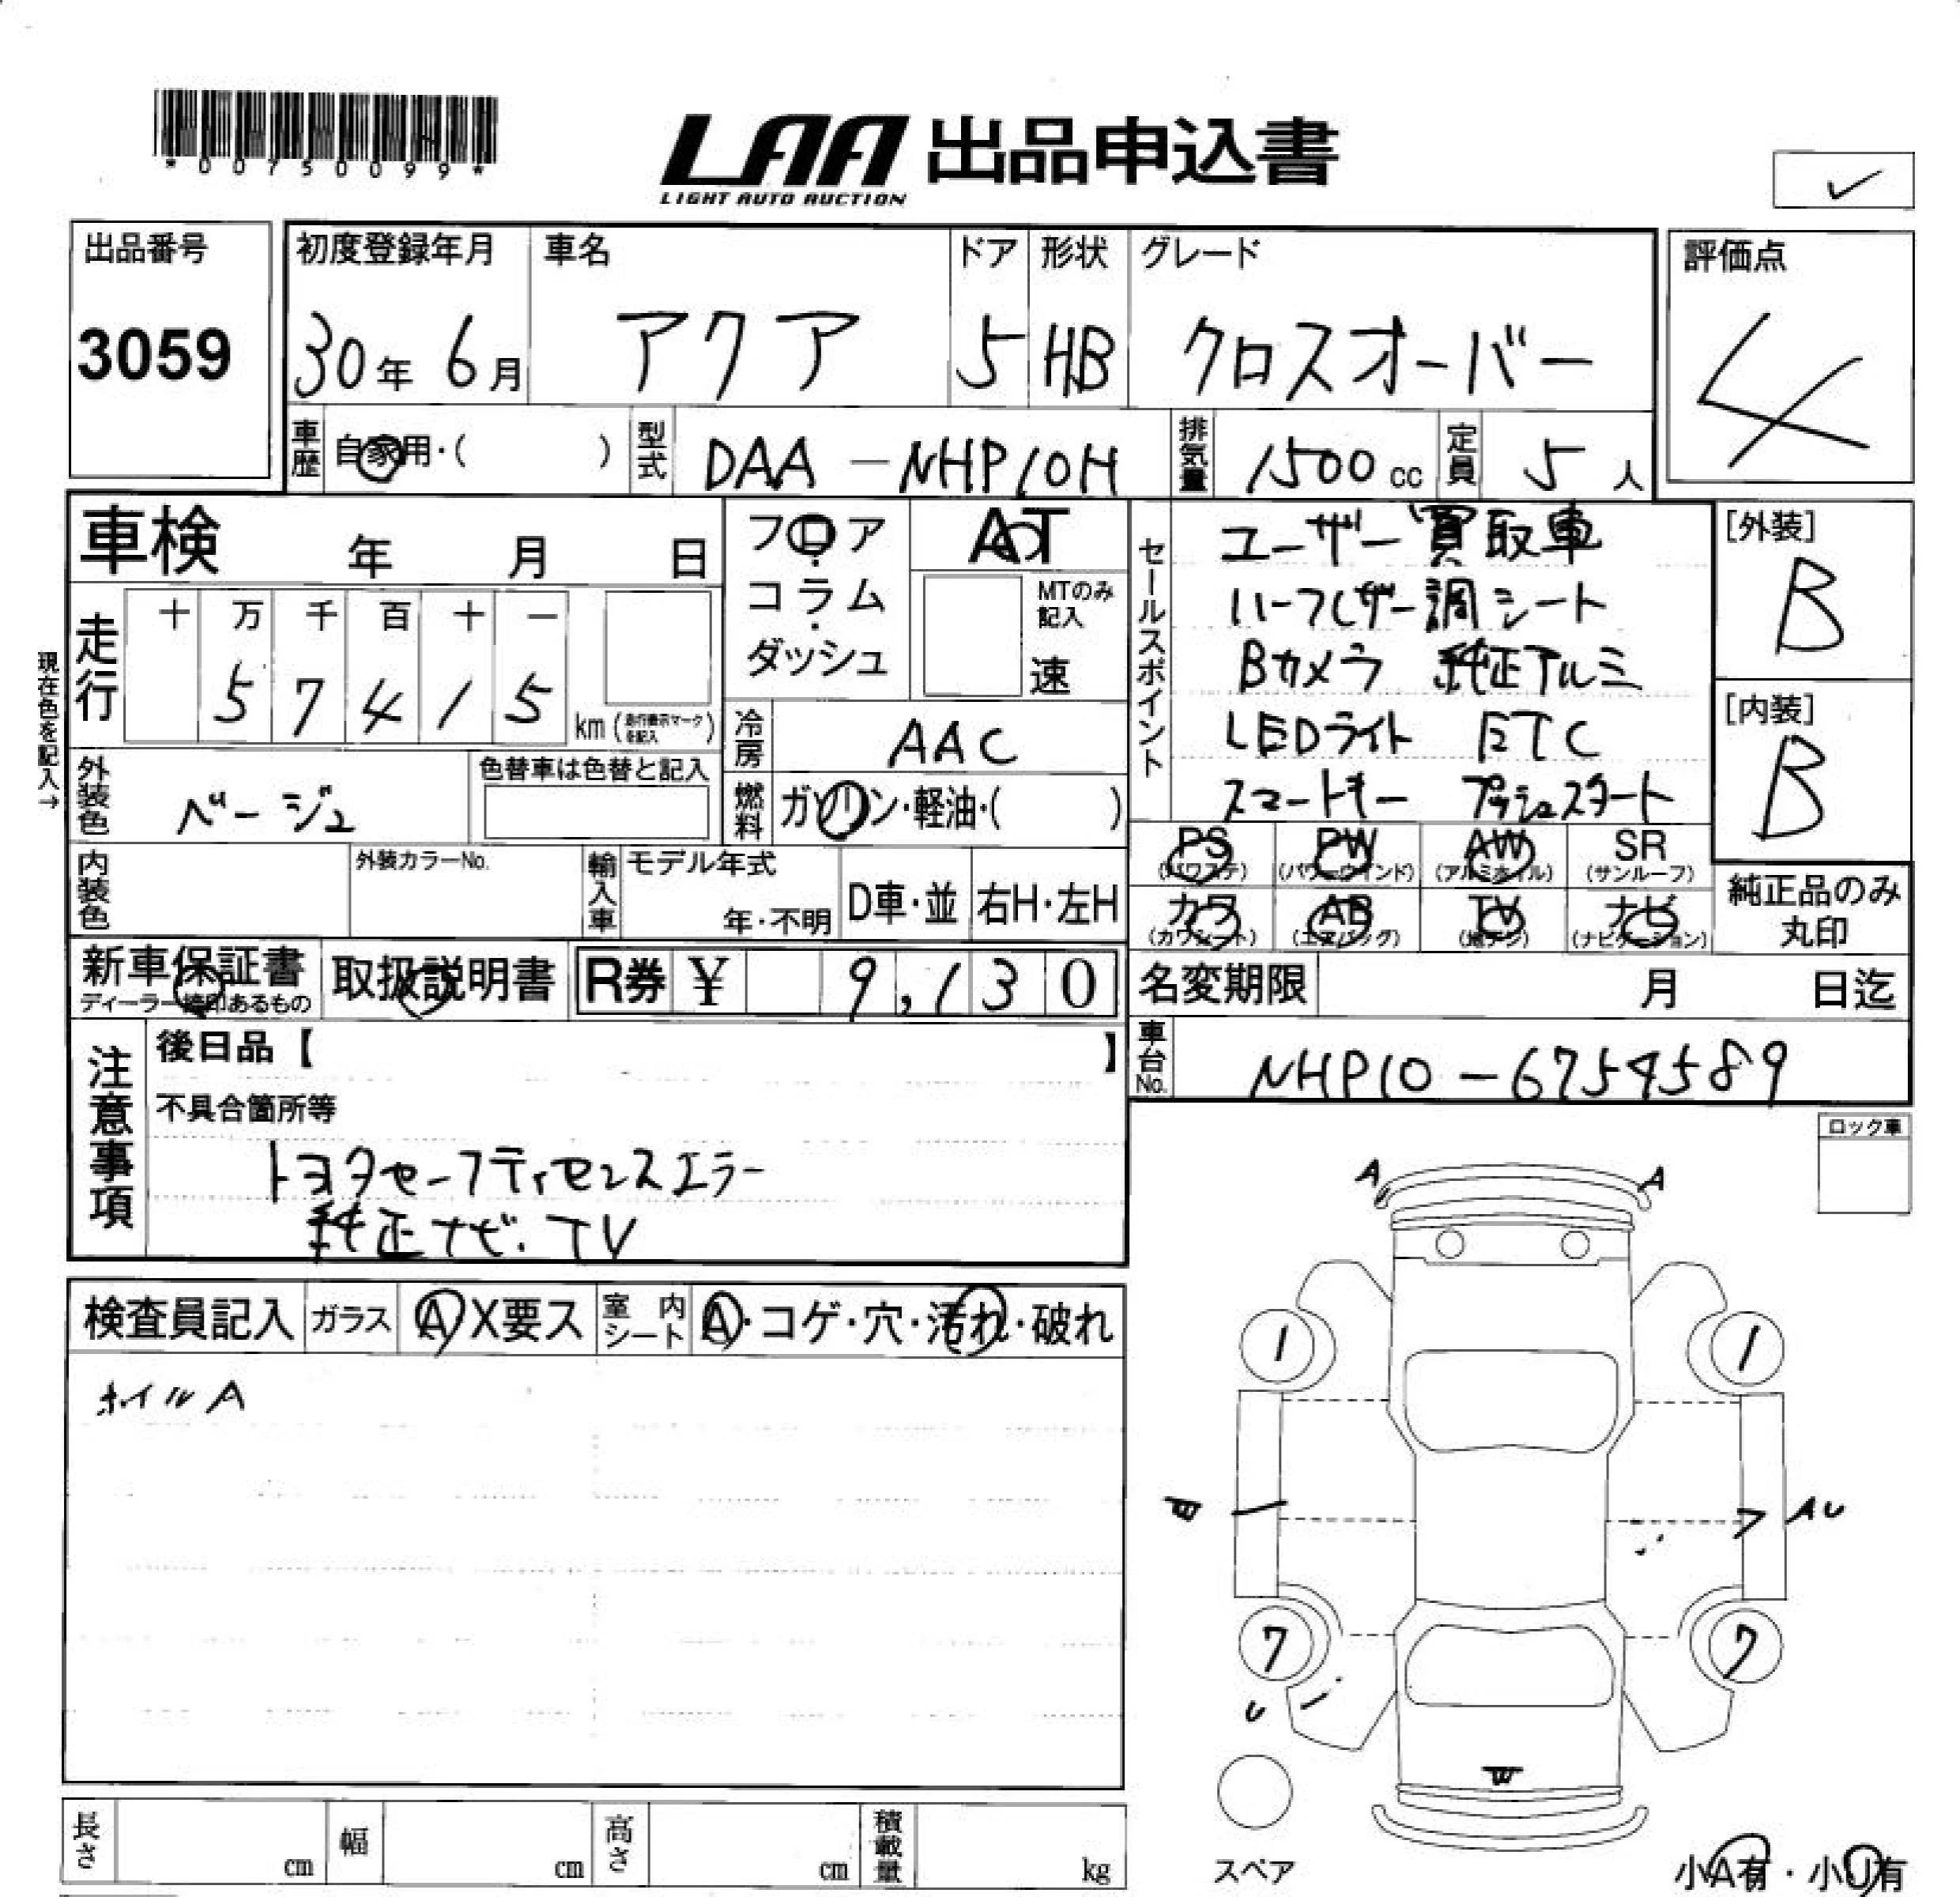 *00750099*
LAA 出品申込書
LIGHT AUTO AUCTION
出品番号
3059
初度登録年月
30年 6月
車名
アクア
ドア
5
形状
HB
グレード
クロスオーバー
評価点
4
車歴
自家用・( )
型式
DAA-NHP10H
排気量
1500cc
定員
5人
車検 年 月 日
フロア・コラム・ダッシュ
AT
MTのみ記入
速
セールスポイント
ユーザー買取車
ハーフレザー調シート
Bカメラ 純正アルミ
LEDライト ETC
スマートキー プッシュスタート
[外装]
B
[内装]
B
現在色を記入→
走行
十 万 千 百 十 一
5 7 4 1 5
km (走行表示マークを記入)
冷房
AAC
外装色
ベージュ
色替車は色替と記入
燃料
ガソリン・軽油・( )
PS (パワステ)
PW (パワーウインド)
AW (アルミホイル)
SR (サンルーフ)
カワ (カワシート)
AB (エアバッグ)
TV (地デジ)
ナビ (ナビゲーション)
純正品のみ丸印
内装色
外装カラーNo.
輸入車
モデル年式
年・不明
D車・並
右H・左H
新車保証書
ディーラー捺印あるもの
取扱説明書
R券 ¥ 9,130
名変期限 月 日迄
車台No.
NHP10-6754589
注意事項
後日品【 】
不具合箇所等
トヨタセーフティセンスエラー
純正ナビ.TV
ロック車
検査員記入
ガラス A X要ス
室内シート A・コゲ・穴・汚れ・破れ
ホイルA
A A
1 1
AU
7 7
U
W
スペア
小A有・小U有
長さ cm
幅 cm
高さ cm
積載量 kg